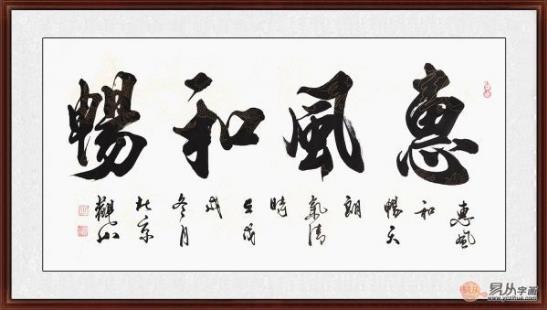 惠風和暢
惠風
和
暢天
朗
氣清
時
在戊
戌
冬月
北京
觀山
易从字画
www.yczihua.com